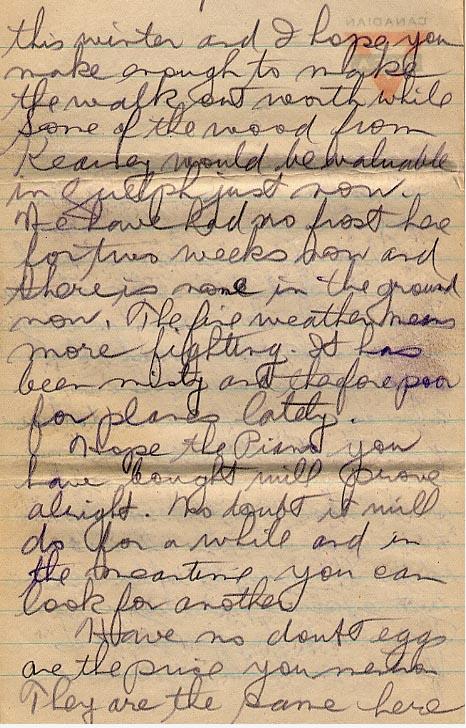 this winter and I hope you
make enough to make
the walk out worth while
Some of the wood from
Kearney would be valuable
in Guelph just now.
We have had no frost here
for two weeks now and
there is none in the ground
now. The fine weather means
more fighting. It has
been misty and therefore poor
for planes lately.
Hope the Piano you
have bought will prove
alright. No doubt it will
do for a while and in
the meantime you can
look for another
Have no doubt eggs
are the price you mention
They are the same here
CANADIAN